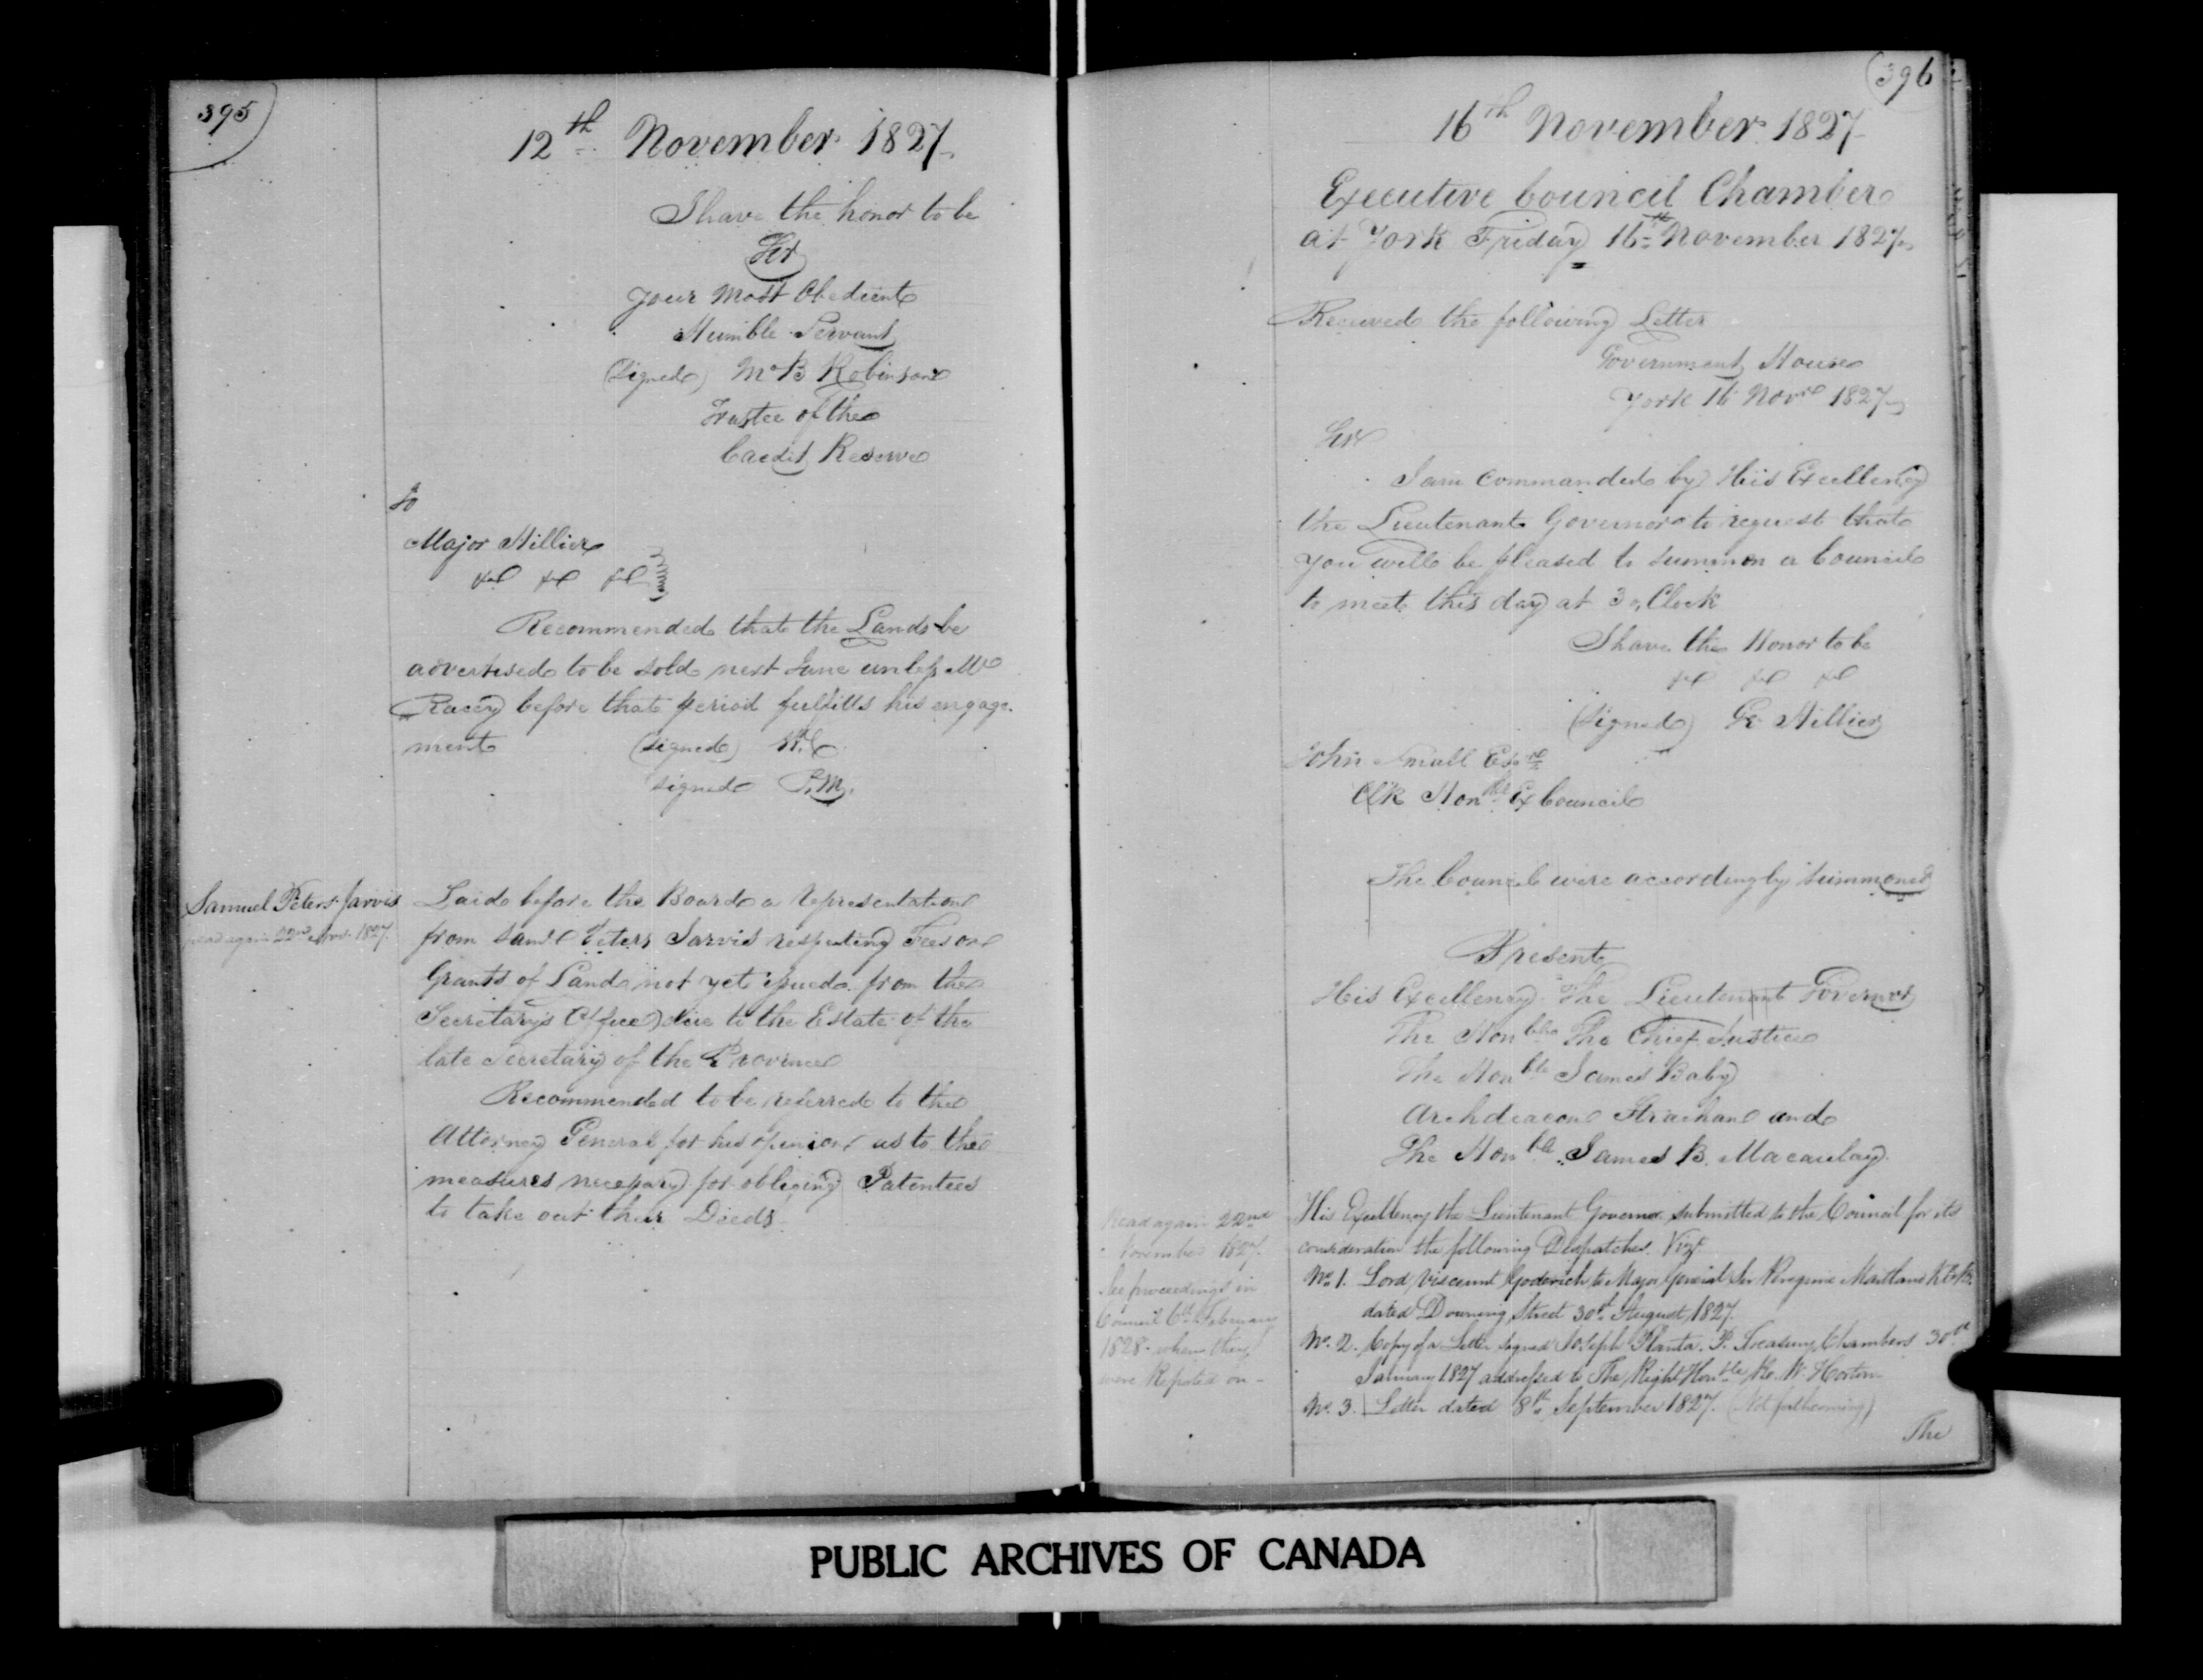 395
12th November 1827
I have the honor to be
Sir
Your Most Obedient
Humble Servant
(Signed) Wm B Robinson
Trustee of the
Credit Reserve
To
Major Hillier
&c &c &c
Recommended that the Lands be
advertised to be sold next June unless Mr
Racey before that period fulfills his engage-
ment (signed) W.C.
signed P.M.
Samuel Peters Jarvis
read again 22nd Novr 1827.
Laid before the Board a representation
from Saml Peters Jarvis respecting Fees on
Grants of Land not yet issued from the
Secretary's Office due to the Estate of the
late Secretary of the Province
Recommended to be referred to the
Attorney General for his opinion as to the
measures necessary for obliging Patentees
to take out their Deeds.
396
16th November 1827
Executive Council Chamber
at York Friday 16th November 1827
Received the following Letter
Government House
York 16 Novr 1827
Sir
I am commanded by His Excellency
the Lieutenant Governor to request that
you will be pleased to summon a Council
to meet this day at 3 o,Clock
I have the Honor to be
&c &c &c
(signed) G. Hillier
John Small Esqre
Clk Honble Ex Council
The Council were accordingly summoned
Present
His Excellency The Lieutenant Governor
The Honble The Chief Justice
The Honble James Baby
Archdeacon Strachan and
The Honble James B. Macaulay.
Read again 22nd
November 1827.
See proceedings in
Council 6th February
1828 - when they
were Reported on -
His Excellency the Lieutenant Governor submitted to the Council for its
consideration the following Despatches. Vizt.
No. 1. Lord Viscount Goderich to Major General Sir Peregrine Maitland K.C.B.
dated Downing Street 30th August 1827.
No. 2. Copy of a Letter signed Joseph Planta. Treasury Chambers 30th
January 1827 addressed to The Right Honble R. W. Horton
No. 3. Letter dated 8th September 1827. (Not forthcoming)
The
PUBLIC ARCHIVES OF CANADA